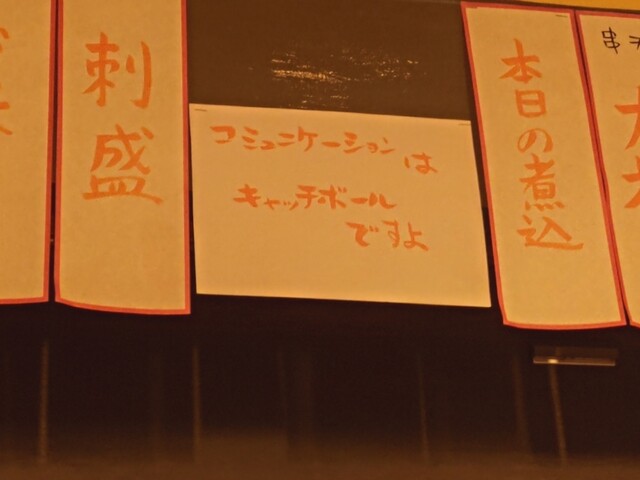 刺盛
コミュニケーションは
キャッチボール
ですよ
本日の煮込
串